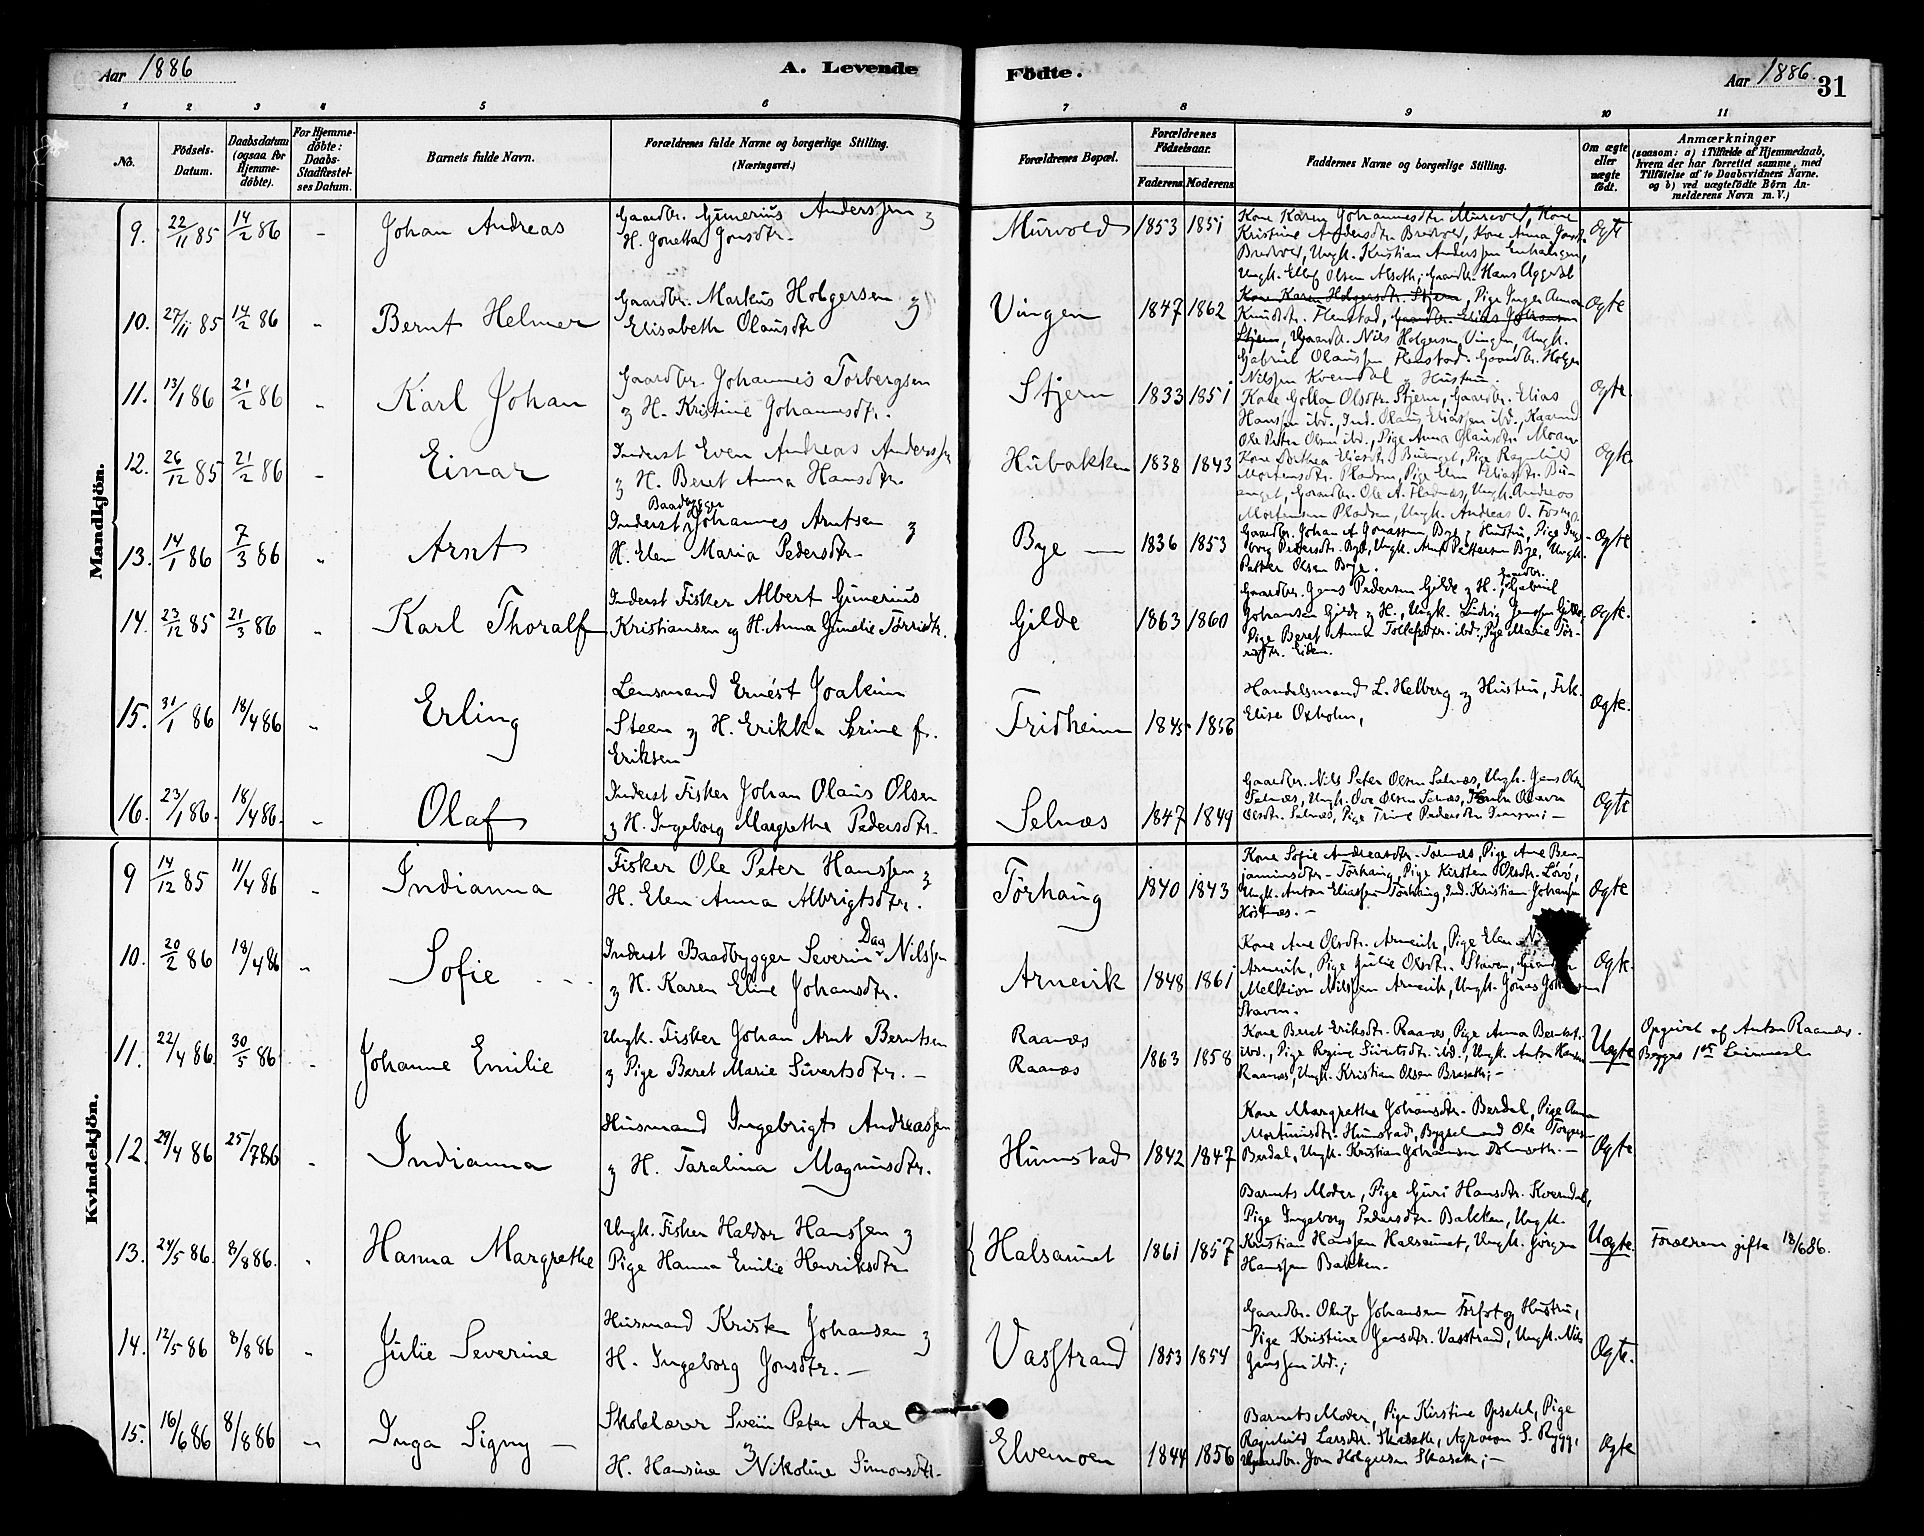 Aar 1886
A. Levende
Födte.
Aar 1886.
31
1 2 3 4 5 6 7 8 9 10 11
No.
Födsels-Datum.
Daabsdatum (ogsaa for Hjemme-döbte).
For Hjemme-döbte: Daabs-Stadfæstel-ses Datum.
Barnets fulde Navn.
Forældrenes fulde Navne og borgerlige Stilling. (Næringsvei.)
Forældrenes Bopæl.
Forældrenes Födselsaar.
Faderens. Moderens.
Faddernes Navne og borgerlige Stilling.
Om ægte eller uægte födt.
Anmærkninger
(saasom: a) i Tilfælde af Hjemmedaab, hvem der har forrettet samme, med Tilföielse af to Daabsvidners Navne. og b) ved uægtefödte Börn Anmelderens Navn m. V.)
Mandkjön.
9. 22/11 85 14/2 86 - Johan Andreas
Gaardbr. Gunerius Anderssen og
H. Jonetta Jonsdtr.
Murvold 1853 1851
Kone Karen Johannesdtr. Murvold, Kone
Kristine Andersdtr. Bredvold, Kone Anna
Bredvold, Ungk. Kristian Anderssen
Ungk. Ellef Olsen Alseth, Gaardbr. Hans Aggdal
Ægte
10. 27/11 85 14/2 86 " Bernt Helmer
Gaardbr. Markus Holgersen og
Elisabeth Olausdtr
Vingen 1847 1862
Kone Karen Holgersdtr. Stjern, Pige Inger Anna
Knudsdtr. Flenstad, Gaardbr. Elias Johansen
Stjern, Gaardbr. Nils Holgersen Vingen, Ungk.
Gabriel Olaussen Flenstad. Gaardbr. Holger
Nilssen Kverndal og Hustru.
Ægte
11. 13/1 86 21/2 86 " Karl Johan
Gaardbr. Johannes Torbergsen
og H. Kristine Johannesdtr.
Stjern 1833 1851
Kone Golla Olsdtr. Stjern, Gaardbr. Elias
Hanssen ibd., Ind. Olaus Eliassen ibd., Kaarmd
Ole Peter Olsen ibd., Pige Anna Olausdtr. Moan
Ægte.
12. 26/12 85 21/2 86 - Einar
Inderst Even Andreas Anderssen
og H. Beret Anna Hansdtr.
Hubakken 1838 1843
Kone Dorthea Eliasdtr. Buenget, Pige Ragnhild
Mortensdtr. Pladsen, Pige Elen Eliasdtr. Bu-
enget, Gaardbr. Ole A. Fladnæs, Ungk. Andreas
Mortensen Pladsen, Ungk. Andreas O.
Ægte.
13. 14/1 86 7/3 86 " Arnt
Baadbygger
Inderst Johannes Arntsen og
H. Elen Maria Pedersdtr.
Bye 1836 1853
Gaardbr. Johan A. Jonassen Bye og Hustru, Pige Inge-
borg Pedersdtr. Bye, Ungk. Arnt Pettersen Bye, Ungk.
Petter Olsen Bye.
Ægte
14. 23/12 85 21/3 86 " Karl Thoralf
Inderst Fisker Albert Gunerius
Kristiansen og H. Anna Gunelie Tørrisdtr.
Gilde 1863 1860
Gaardbr. Jens Pedersen Gilde og H., Gaardbr. Gabriel
Johansen Gilde og H., Ungk. Ludvig Jenssen Gilde,
Pige Beret Anna Tollefsdtr. ibd., Pige Marie Tør-
risdtr. Eiden.
Ægte.
15. 31/1 86 18/4 86 " Erling
Lensmand Ernést Joakim
Steen og H. Erikka Serine f.
Eriksen
Fridheim 1845 1856
Handelsmand L. Helberg og Hustru, Frk.
Elise Oxholm,
Ægte.
16. 23/1 86. 18/4 86. " Olaf
Inderst Fisker Johan Olaus Olsen
og H. Ingeborg Margrethe Pedersdtr.
Selnæs 1847 1849
Gaardbr. Nils Peter Olsen Selnæs, Ungk. Jens Olsen
Selnæs, Ungk. Ove Olsen Selnæs, Olava
Olsdtr. Selnæs, Pige Trine Pedersdtr.
Ægte
Kvindekjön.
9 14/12 85 11/4 86 " Indianna
Fisker Ole Peter Hanssen og
H. Elen Anna Albrigtsdtr.
Törhaug 1840 1843
Kone Sofie Andreasdtr. Tørnæs, Pige Ane Ben-
jaminsdtr. Törhaug, Pige Kirsten Olsdtr. Lövö,
Ungk. Anton Eliassen Törhaug, Ind. Kristian Johansen
Höstnæs. -
Ægte
10. 20/2 86 18/4 86 " Sofie
Inderst Baadbygger Severin Daa Nilssen
og H. Karen Eline Johansdtr.
Arnevik 1848 1861
Kone Ane Olsdtr. Arnevik, Pige Elen
Arnevik, Pige Julie Olsdtr. Staven,
Melkior Nilssen Arnevik, Ungk. Jonas
Staven.
Ægte.
11. 22/4 86. 30/5 86 Johanne Emilie
Ungk. Fisker Johan Arnt Berntsen
og Pige Beret Marie Sivertsdtr. -
Raanæs
Raanæs
1863 1858
Kone Beret Eriksdtr. Raanæs, Pige Anna Berntsdtr.
ibd., Pige Regine Sivertsdtr. ibd., Ungk. Anton Hansen
Raanæs, Ungk. Kristian Olsen Braseth; -
Uægte
Opgivet af Anton Raanæs.
Begges 1ste Leiermaal
12. 29/4 86 25/7 86 " Indianna
Husmand Ingebrigt Andreassen
og H. Taralina Magnusdtr.
Humstad 1842 1847
Kone Margrethe Johansdtr. Berdal, Pige Ane
Martinusdtr. Humstad, Bygselmand Ole
Berdal, Ungk. Kristian Johansen Holmseth. -
Ægte
13. 24/5 86. 8/8 86. " Hanna Margrethe
Ungk. Fisker Haldor Hanssen og
Pige Hanna Emilie Henriksdtr.
Halsaunet 1861 1857
Barnets Moder, Pige Guri Hansdtr. Kverndal,
Pige Ingeborg Pedersdtr. Bakken, Ungk.
Kristian Hanssen Halsaunet, Ungk. Jörgen
Hanssen Bakken.
Uægte.
Forældrene gifte 18/6 86.
14. 12/5 86 8/8 86 " Julie Severine
Husmand Kristen Johansen og
H. Ingeborg Jonsdtr. -
Vasstrand 1853 1854
Gaardbr. Oluf Johansen Forfot og Hustru,
Pige Kristine Jensdtr. Vasstrand, Ungk. Nils
Jenssen ibd.;
Ægte.
15. 16/6 86 8/8 86 " Inga Signy -
Skolelærer Svein Peter Aae
og
H. Hansine Nikoline Simonsdtr.
Elvemoen 1844 1856
Barnets Moder, Pige Kirstine Opsahl, Pige
Ragnhild Larsdtr. Skaseth, Agronom S. Rygg,
Gaardbr. Jon Holgersen Skaseth; -
Ægte